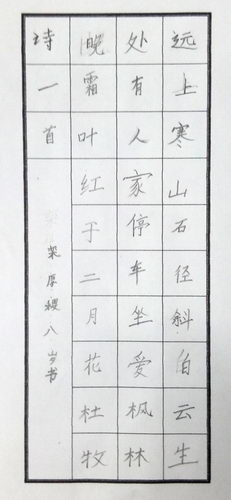 远上寒山石径斜白云生
处有人家停车坐爱枫林
晚霜叶红于二月花杜牧
诗一首
厚稷八岁书